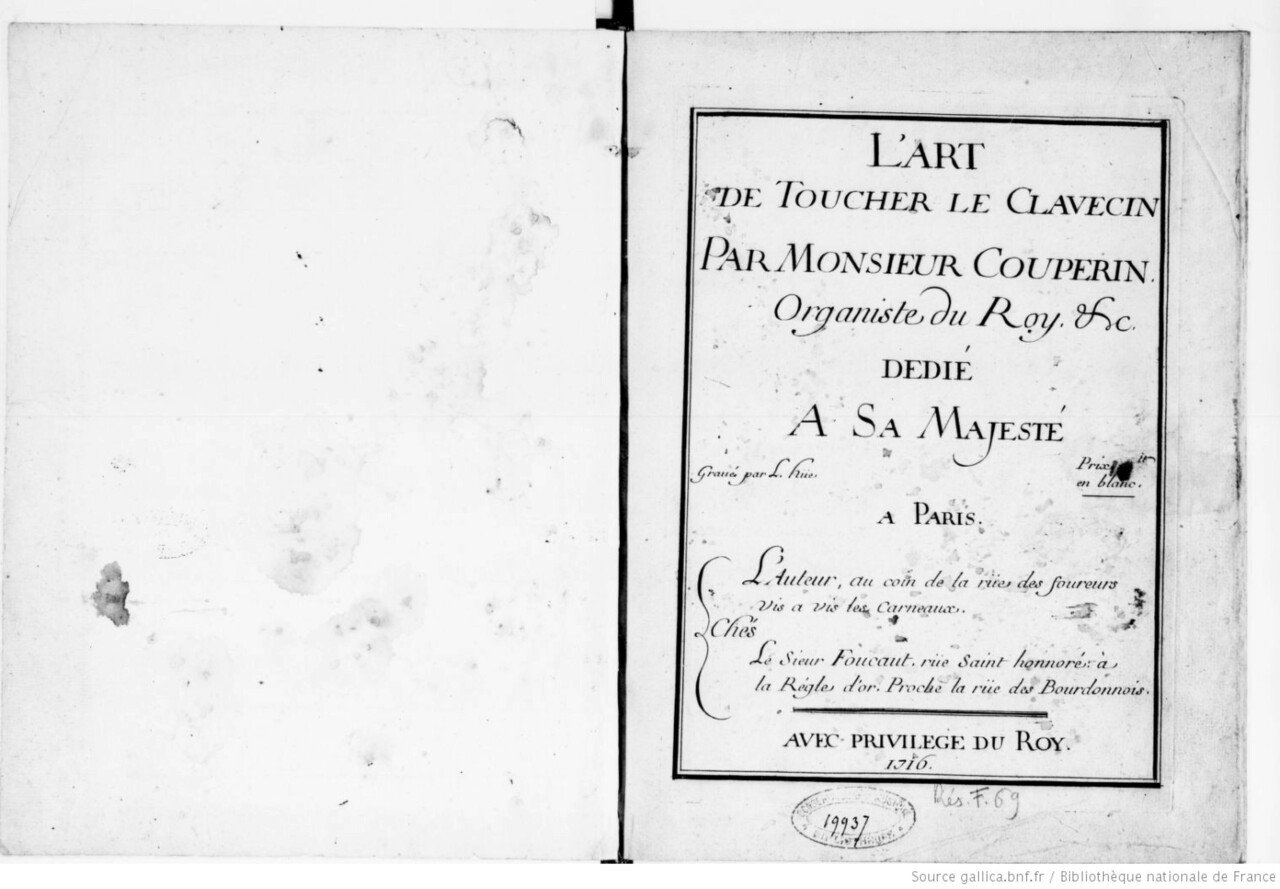 L'ART
DE TOUCHER LE CLAVECIN
PAR MONSIEUR COUPERIN.
Organiste du Roy. &c.
DEDIÉ
A SA MAJESTÉ
Gravé par L. hüe.
Prix
en blanc.
A PARIS.
L'Auteur, au coin de la rüe des foureurs
vis a vis les Carneaux.
Chés
Le Sieur Foucaut, rüe Saint honnoré: à
la Régle d'or. Proche la rüe des Bourdonnois.
AVEC PRIVILEGE DU ROY.
1716.
Rés. F. 69
19937
Source gallica.bnf.fr / Bibliothèque nationale de France